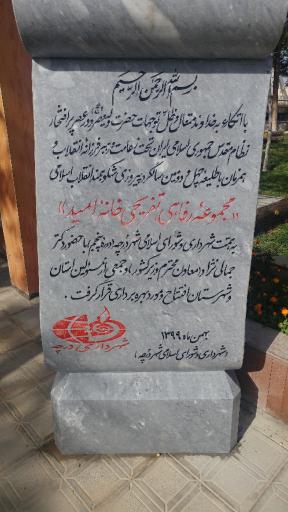 بسم الله الرحمن الرحیم
با اتکاء به خداوند متعال و در ظل توجهات حضرت ولیعصر (عج) و در عصر پر افتخار
نظام مقدس جمهوری اسلامی ایران تحت زعامت رهبر فرزانه انقلاب و
همزمان با طلیعه چهل و دومین سالگرد پیروزی شکوهمند انقلاب اسلامی
«مجموعه رفاهی تفریحی خانه امید»
به همت شهرداری و شورای اسلامی شهر درچه دوره پنجم با حضور دکتر
جمالی نژاد معاون محترم وزیر کشور و جمعی از مسئولین استان
و شهرستان افتتاح و مورد بهره برداری قرار گرفت.
بهمن ماه ۱۳۹۹
شهرداری و شورای اسلامی شهر درچه
شهرداری درچه